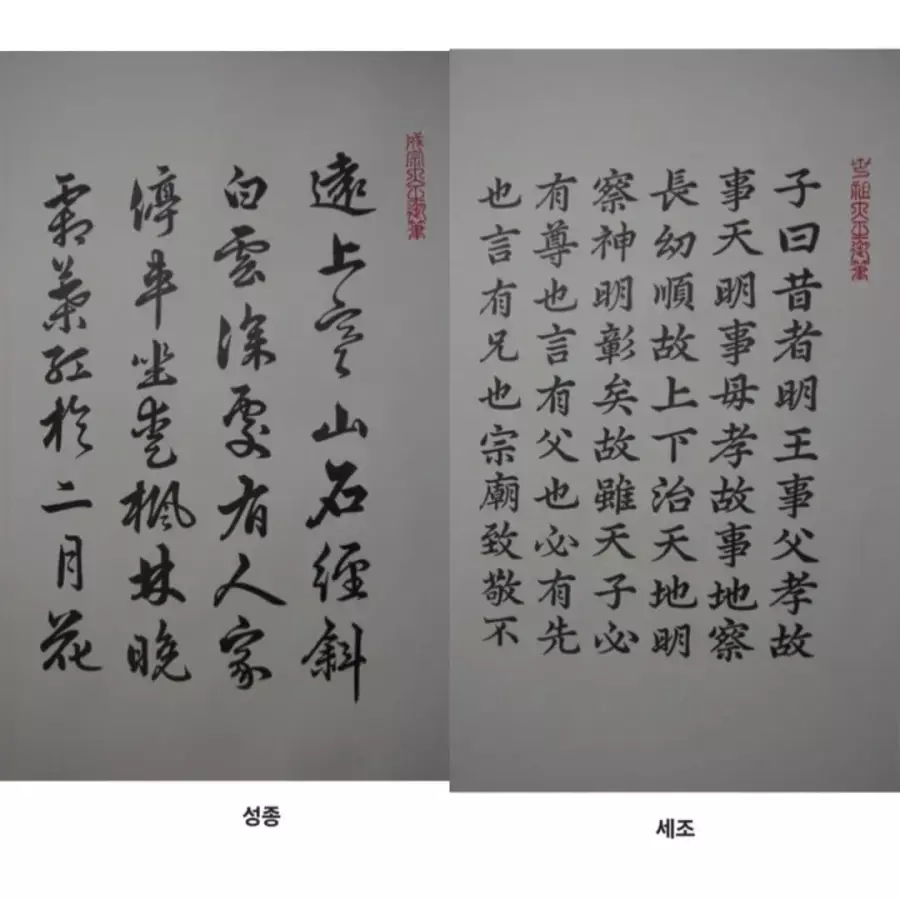 成宗大王御筆
遠上寒山石經斜
白雲深處有人家
停車坐愛楓林晚
霜葉紅於二月花
성종
世祖大王御筆
子曰昔者明王事父孝故
事天明事母孝故事地察
長幼順故上下治天地明
察神明彰矣故雖天子必
有尊也言有父也必有先
也言有兄也宗廟致敬不
세조